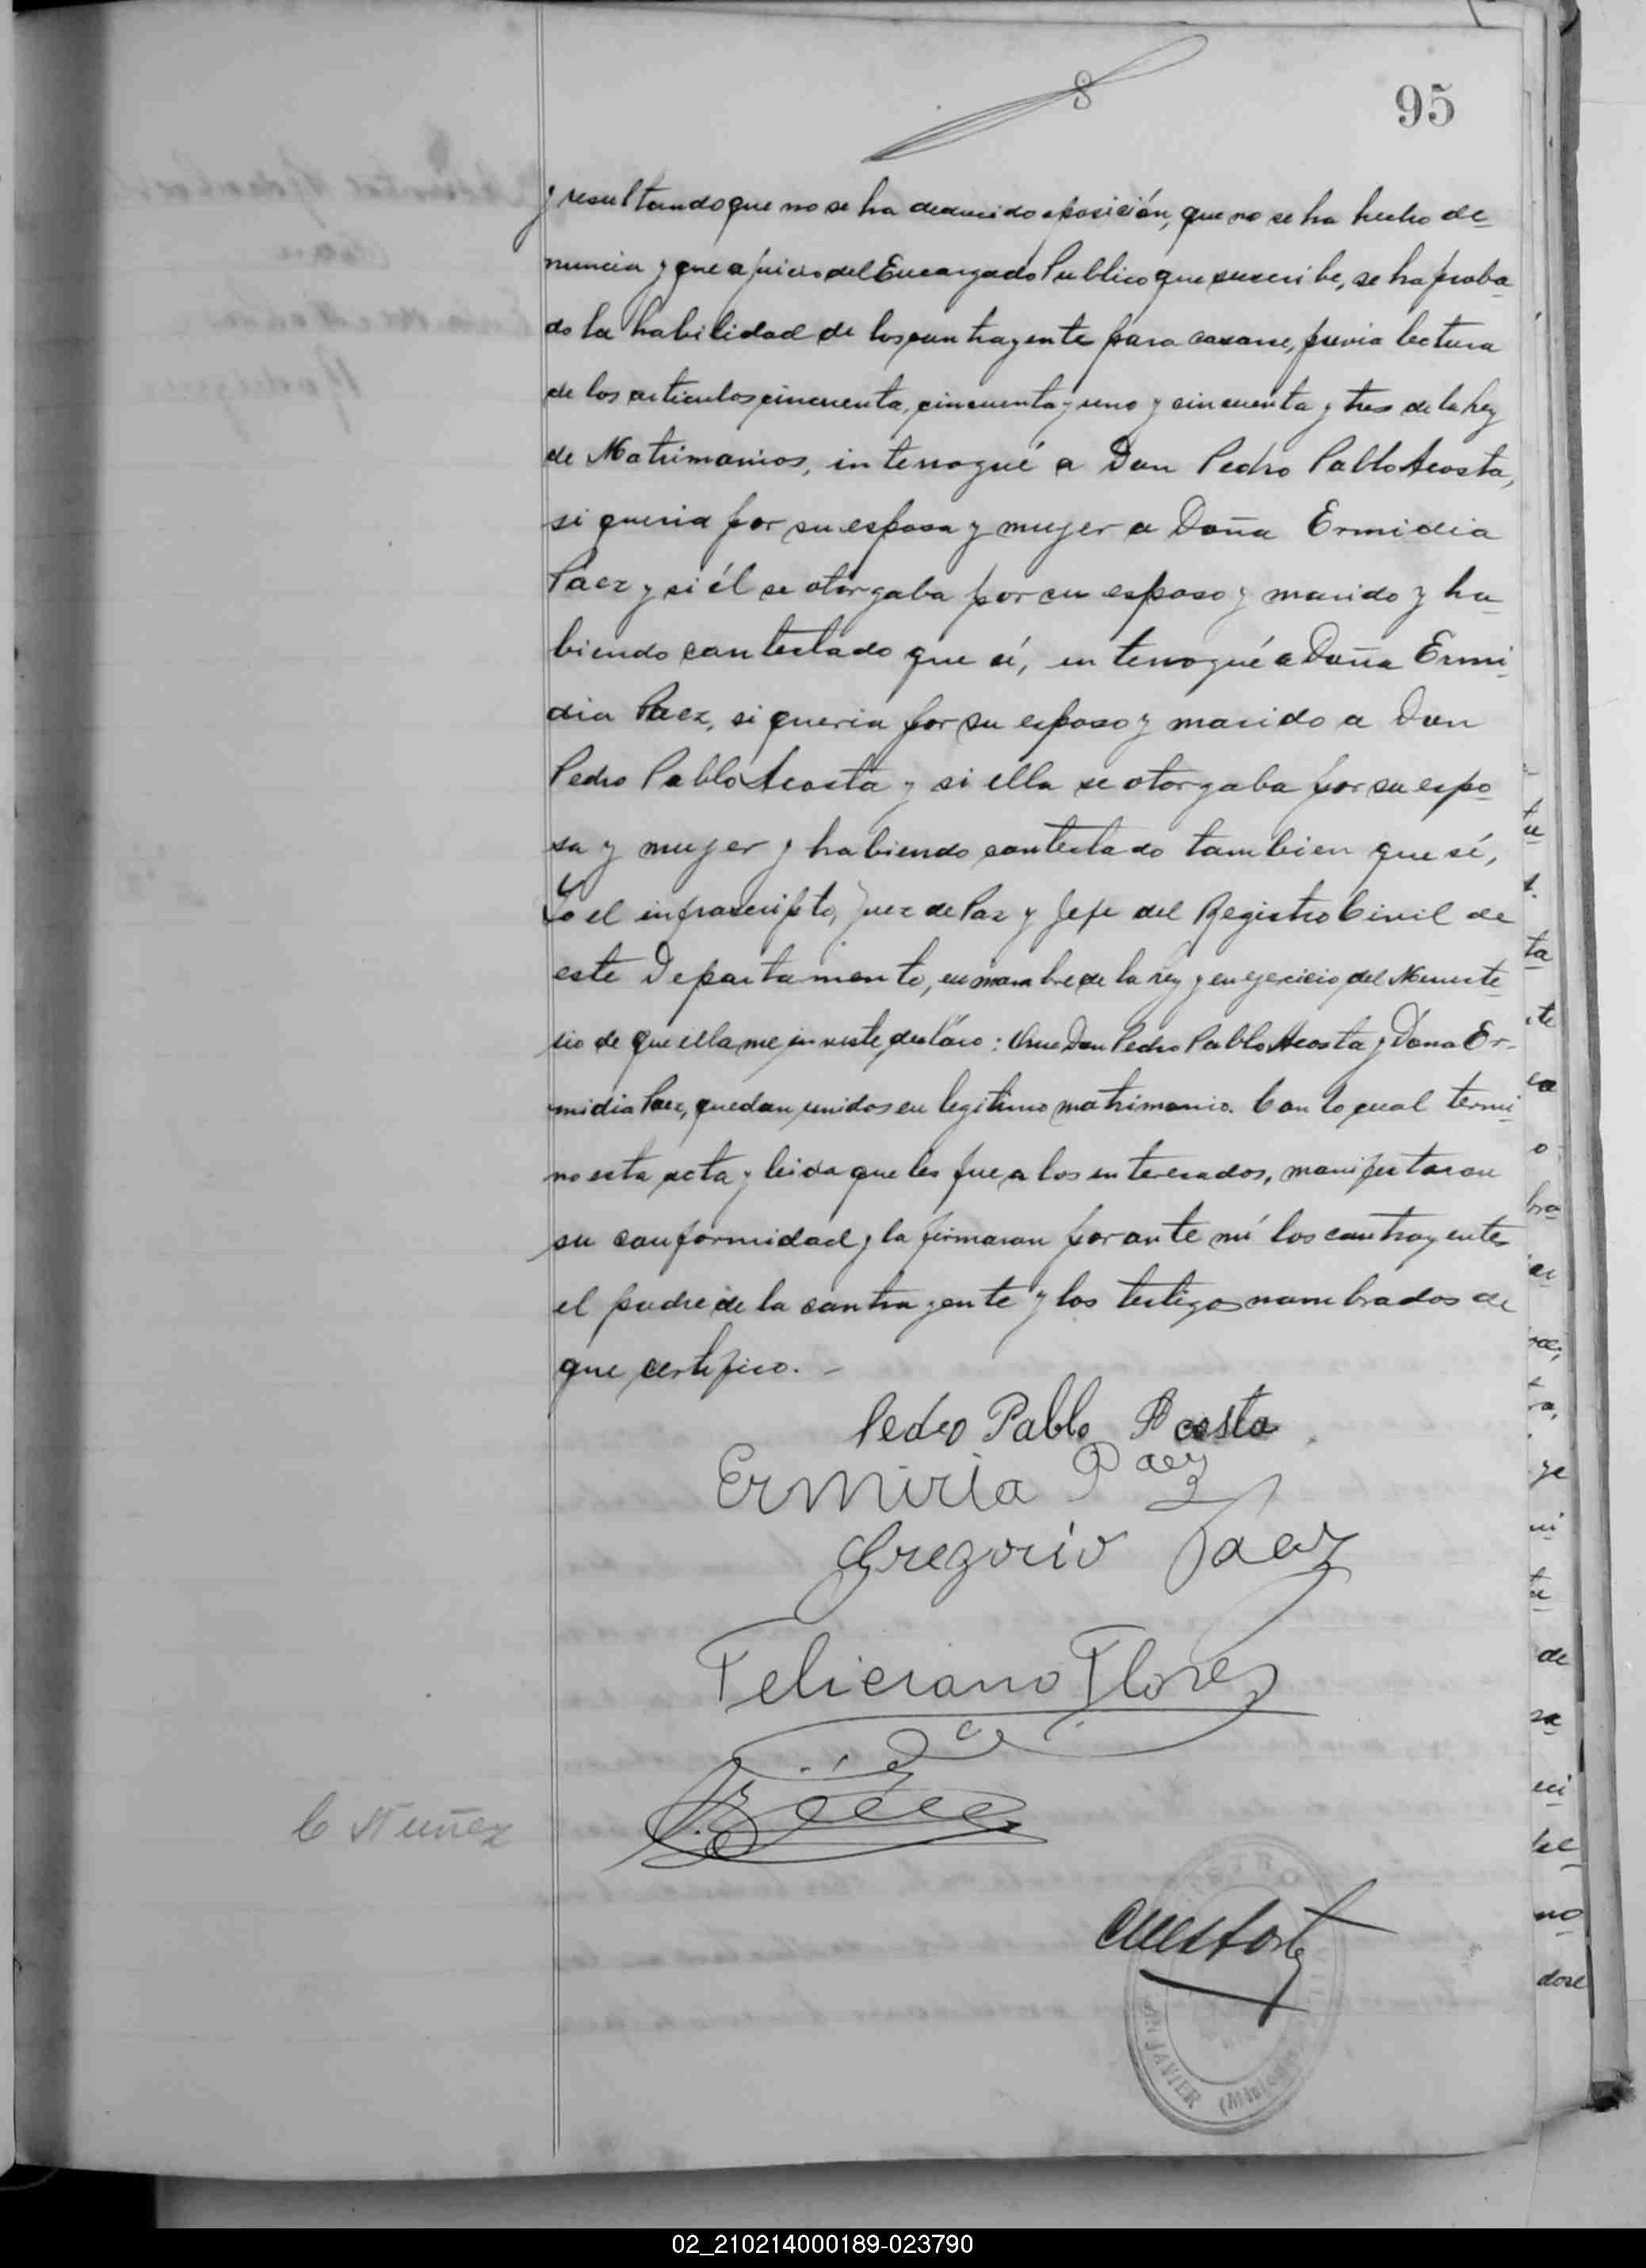 8
95
y resultando que no se ha deducido oposición, que no se ha hecho de-
nuncia y que a juicio del Encargado Publico que suscribe, se ha proba-
do la habilidad de los contrayente para casarse, previa lectura
de los articulos cincuenta, cincuenta y uno y cincuenta y tres de la ley
de Matrimonios, interrogué a Don Pedro Pablo Acosta,
si queria por su esposa y mujer a Doña Ermidia
Paez y si él se otorgaba por su esposo y marido y ha-
biendo contestado que sí, interrogué a Doña Ermi-
dia Paez, si queria por su esposo y marido a Don
Pedro Pablo Acosta y si ella se otorgaba por su espo-
sa y mujer y habiendo contestado tambien que sí,
Yo el infrascripto, Juez de Paz y Jefe del Registro Civil de
este Departamento, en nombre de la ley y en ejercicio del Ministe-
rio de que ella me inviste declaro: Que Don Pedro Pablo Acosta y Doña Er-
midia Paez, quedan unidos en legitimo matrimonio. Con lo cual termi-
no esta acta y leida que les fue a los interesados, manifestaron
su conformidad y la firmaron por ante mí los contrayentes
el padre de la contrayente y los testigos nombrados de
que certifico. -
Pedro Pablo Acosta
Ermiria Paez
Gregorio Páez
Feliciano Flores
C Nuñez
REGISTRO CIVIL
SAN JAVIER (Misiones)
02_210214000189-023790